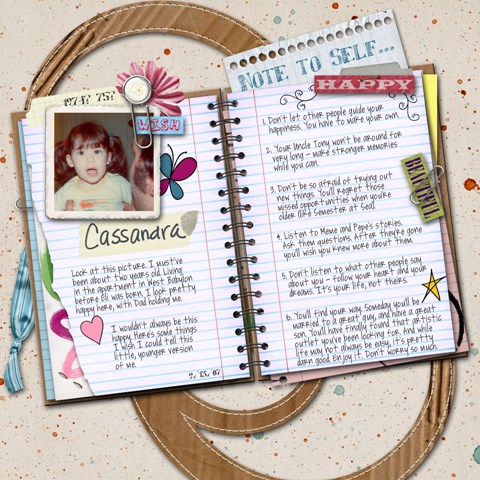 1974? 75?
WISH
Cassandra
Look at this picture. I must've
been about two years old. Living
in the apartment in West Babylon
before Eli was born. I look pretty
happy here, with Dad holding me.
I wouldn't always be this
happy. Here's some things
I wish I could tell this
little, younger version
of me.
9/25/07
NOTE TO SELF...
HAPPY
1. Don't let other people guide your
happiness. You have to make your own.
2. Your Uncle Tony won't be around for
very long - make stronger memories
while you can.
3. Don't be so afraid of trying out
new things. You'll regret those
missed opportunities when you're
older (like Semester at Sea).
4. Listen to Meme and Pepe's stories.
Ask them questions. After they're gone
you'll wish you knew more about them.
5. Don't listen to what other people say
about you - follow your heart and your
dreams. It's your life, not theirs.
6. You'll find your way. Someday you'll be
married to a great guy, and have a great
son. You'll have finally found that artistic
outlet you've been looking for. And while
life may not always be easy, it's pretty
darn good. Enjoy it. Don't worry so much.
BEAUTIFUL